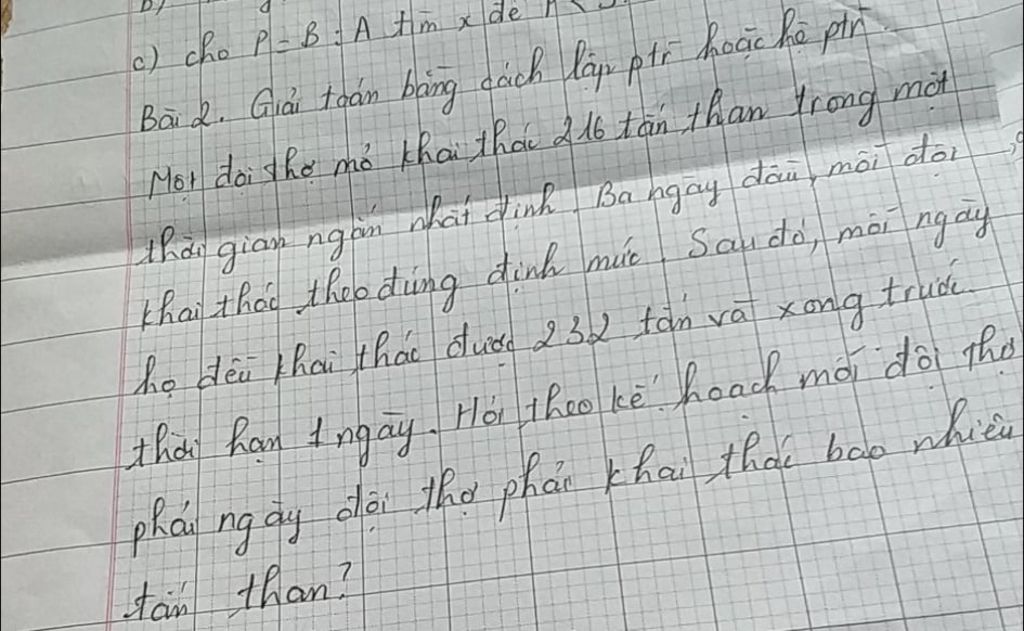 c) cho P = B : A tìm x để
Bài 2. Giải toán bằng cách lập ptr hoặc hệ ptr
Một đội thợ mỏ khai thác 216 tấn than trong một
thời gian ngắn nhất định. Ba ngày đầu, mỗi đội
khai thác theo đúng định mức. Sau đó, mỗi ngày
họ đều khai thác được 232 tấn và xong trước
thời hạn 1 ngày. Hỏi theo kế hoạch mỗi đội thợ
phải ngày đội thợ phải khai thác bao nhiêu
tấn than?